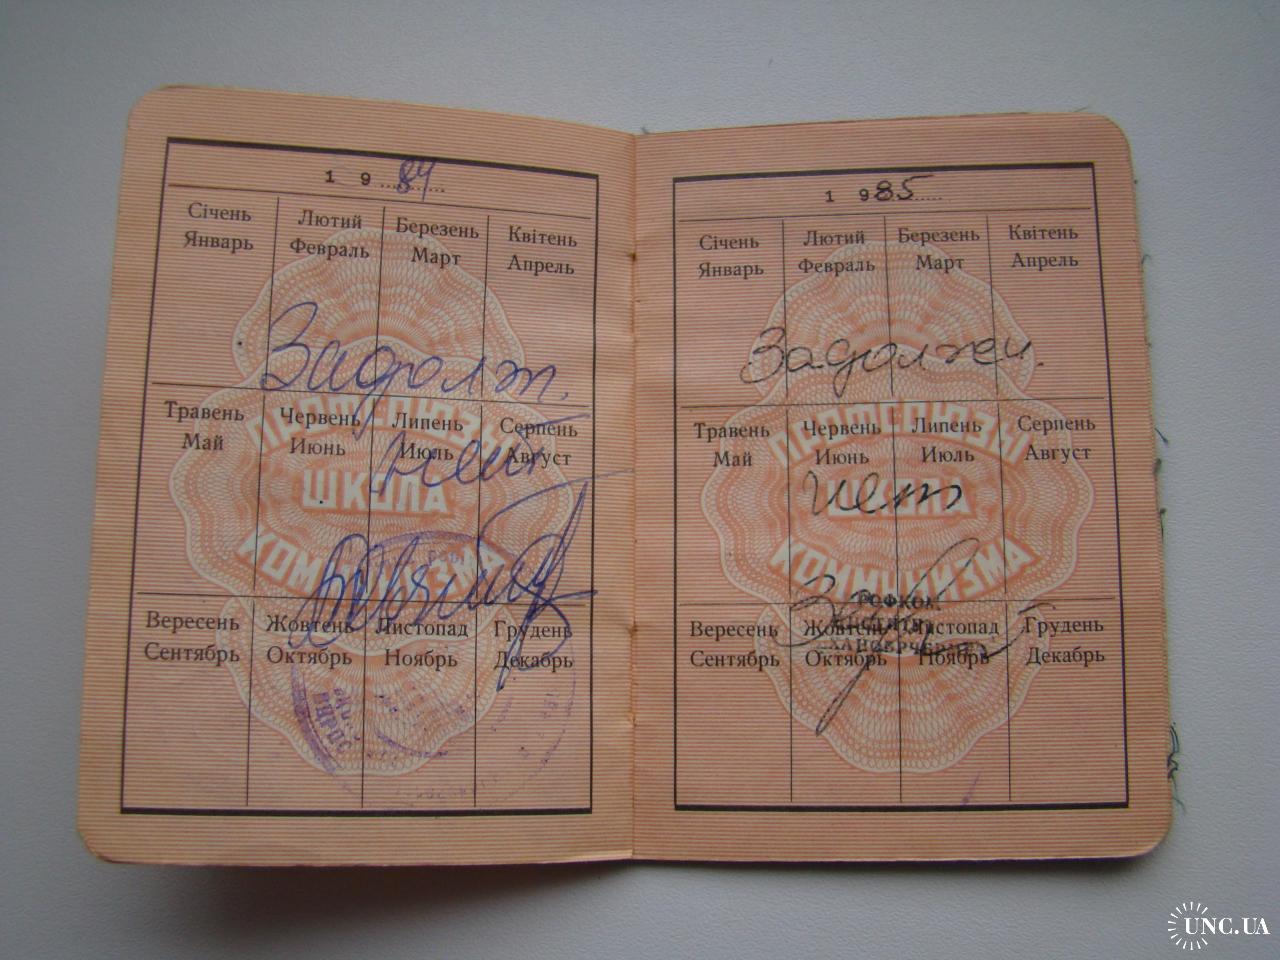 1984
Січень Лютий Березень Квітень
Январь Февраль Март Апрель
Задолж.
Травень Червень Липень Серпень
Май Июнь Июль Август
нет
ПРОФСОЮЗЫ
ШКОЛА
КОММУНИЗМА
Вересень Жовтень Листопад Грудень
Сентябрь Октябрь Ноябрь Декабрь
1985
Січень Лютий Березень Квітень
Январь Февраль Март Апрель
Задолжен.
Травень Червень Липень Серпень
Май Июнь Июль Август
нет
ПРОФСОЮЗЫ
ШКОЛА
КОММУНИЗМА
Вересень Жовтень Листопад Грудень
Сентябрь Октябрь Ноябрь Декабрь
UNC.UA